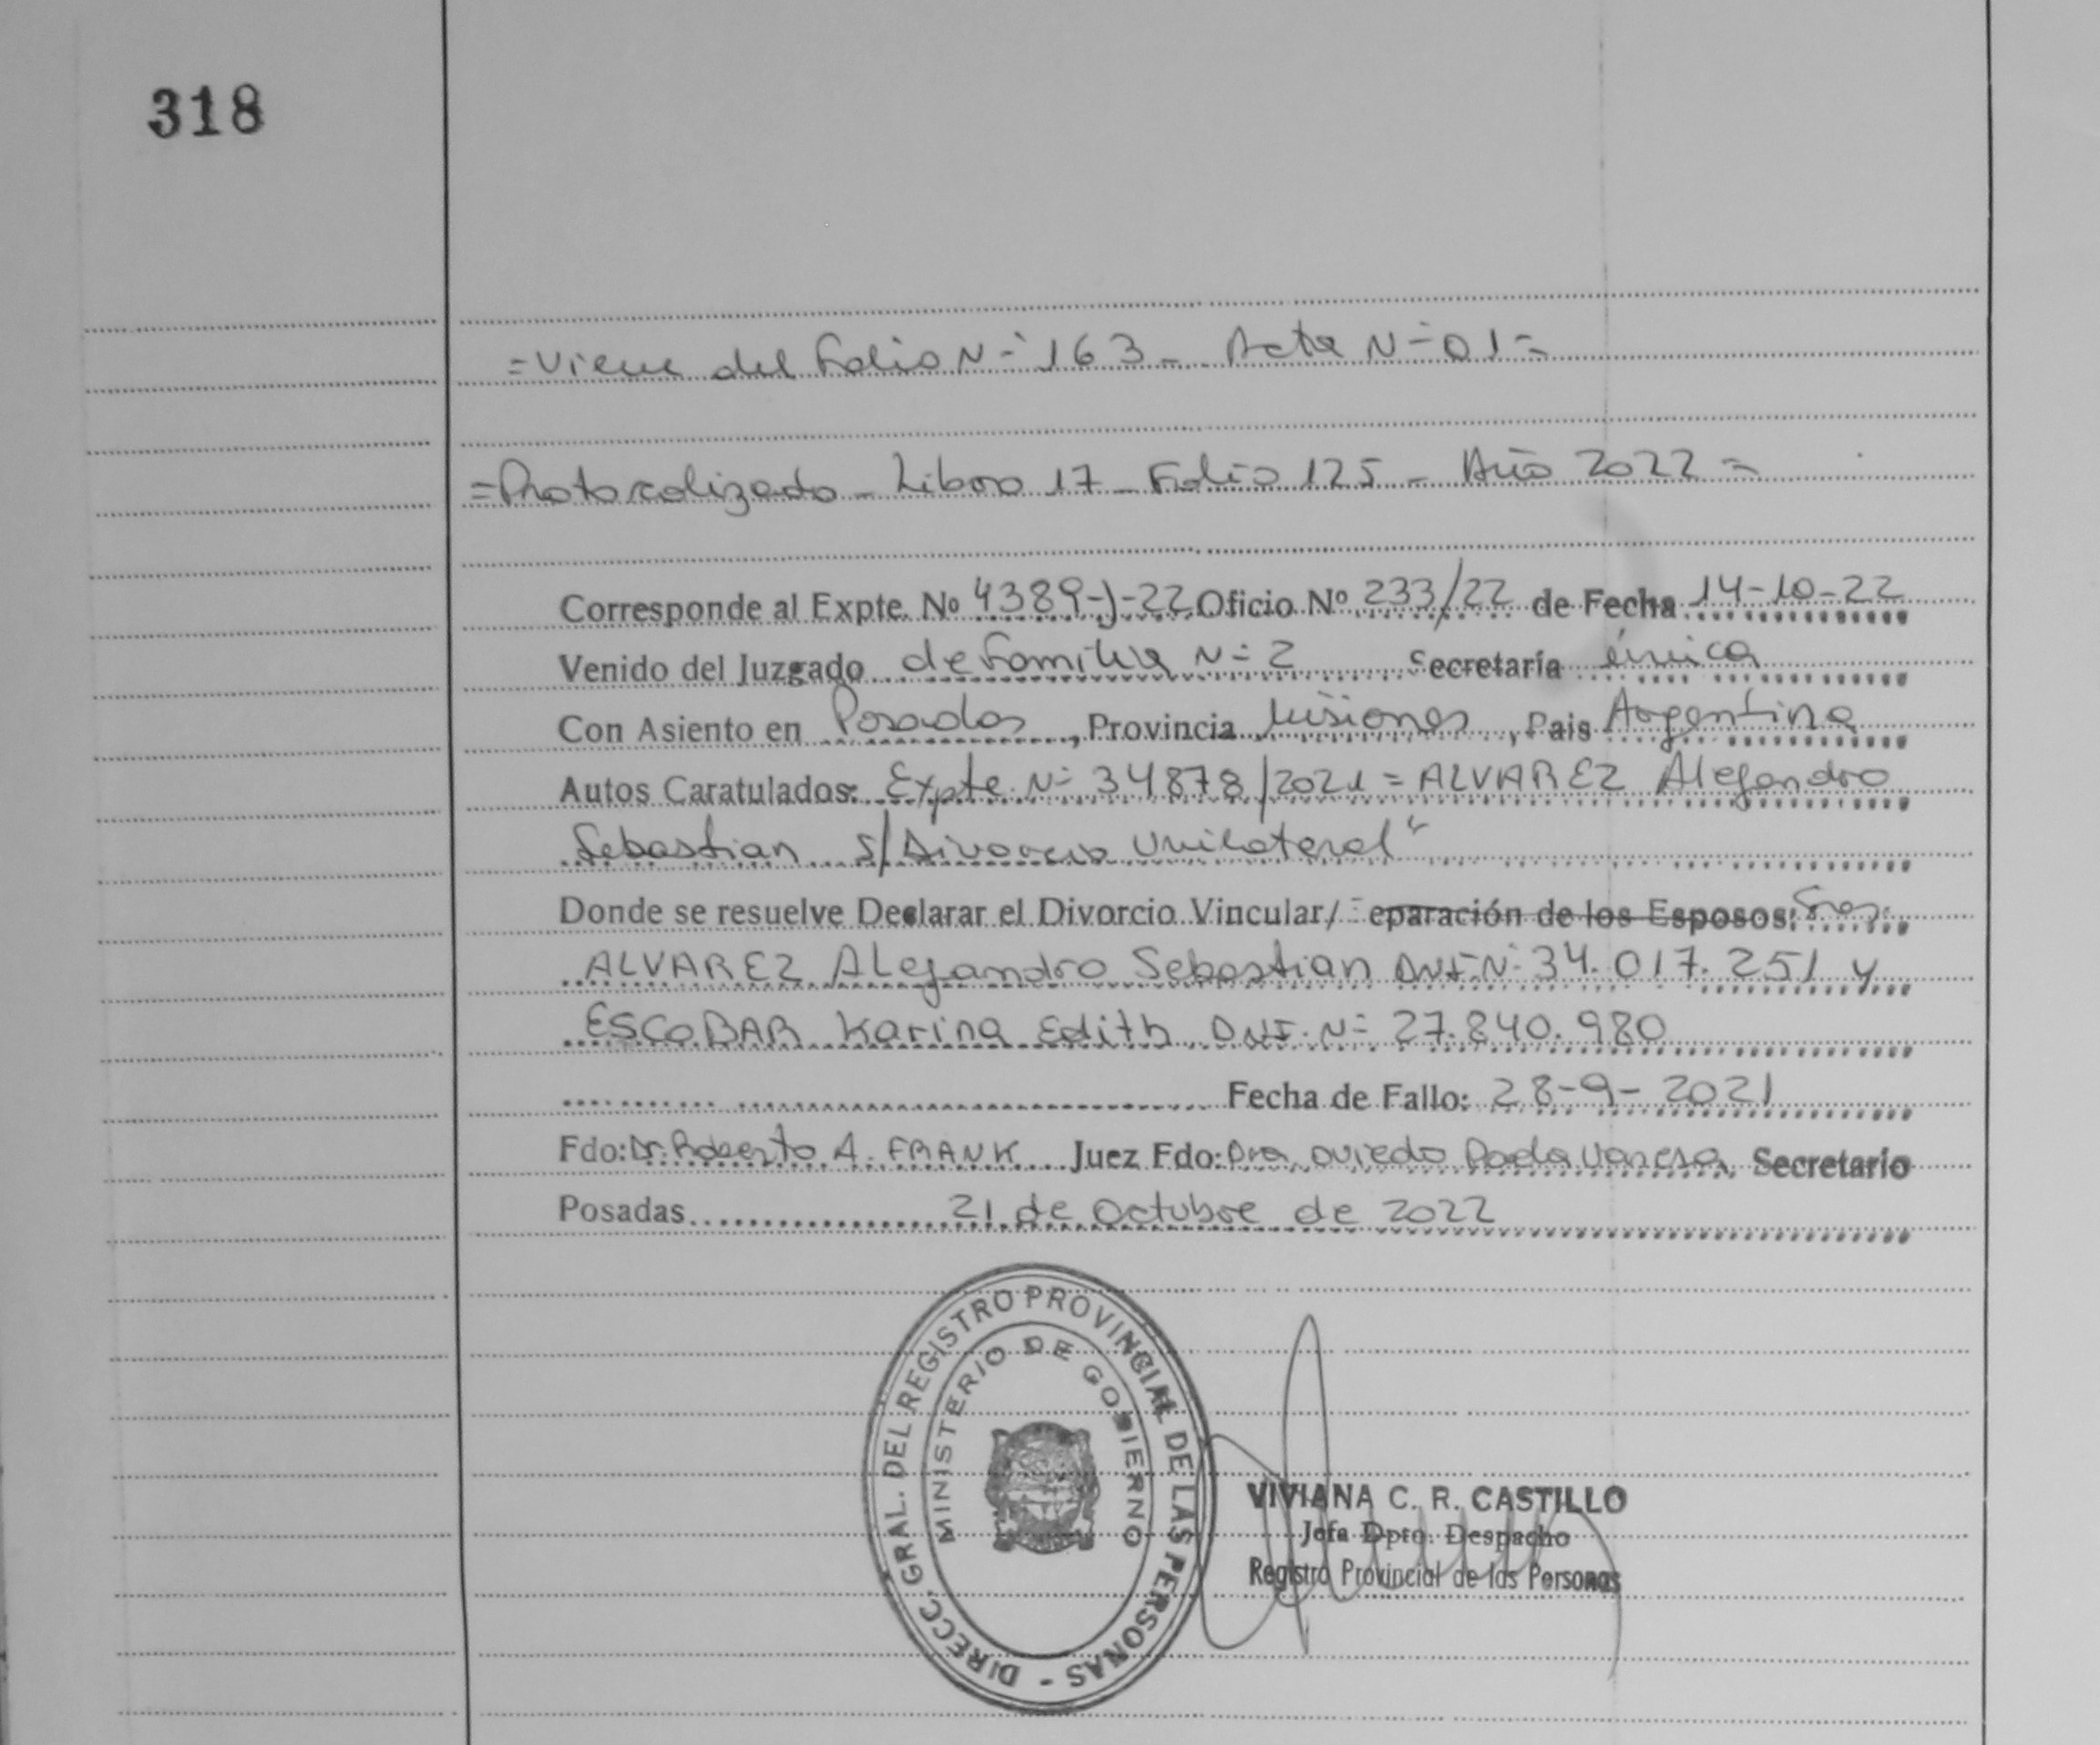 318
=Viene del Folio Nº 163 - Acta Nº 01=
=Protocolizado - Libro 17 - Folio 125 - Año 2022=
Corresponde al Expte. Nº 4389-J-22 Oficio Nº 233/22 de Fecha 14-10-22
Venido del Juzgado de Familia Nº 2 Secretaría única
Con Asiento en Posadas, Provincia Misiones, Pais Argentina
Autos Caratulados: Expte Nº 34878/2021 = ALVAREZ Alejandro
Sebastian s/Divorcio Unilateral"
Donde se resuelve Declarar el Divorcio Vincular/ Separación de los Esposos: Sres.
ALVAREZ Alejandro Sebastian DNI Nº 34.017.251 y
ESCOBAR Karina Edith DNI. Nº 27.840.980
Fecha de Fallo: 28-9-2021
Fdo: Dr. Roberto A. FRANK Juez Fdo: Dra. Oviedo Paola Vanesa Secretario
Posadas 21 de Octubre de 2022
DIRECC. GRAL. DEL REGISTRO PROVINCIAL DE LAS PERSONAS -
MINISTERIO DE GOBIERNO
VIVIANA C. R. CASTILLO
Jefa Dpto. Despacho
Registro Provincial de las Personas